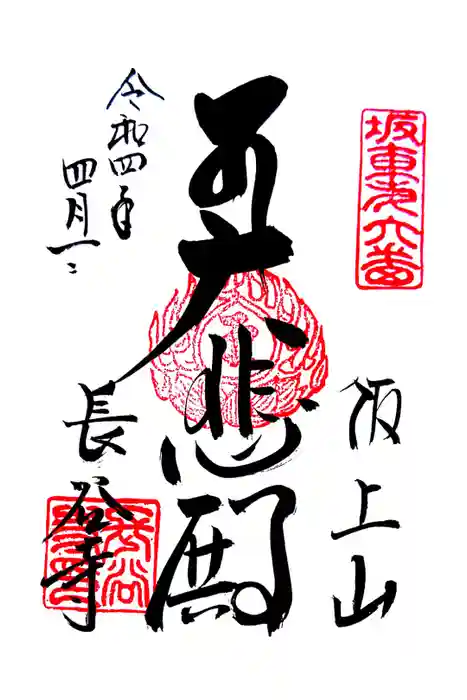 坂東第六番
飯上山
大悲殿
令和四年
四月一日
長谷寺